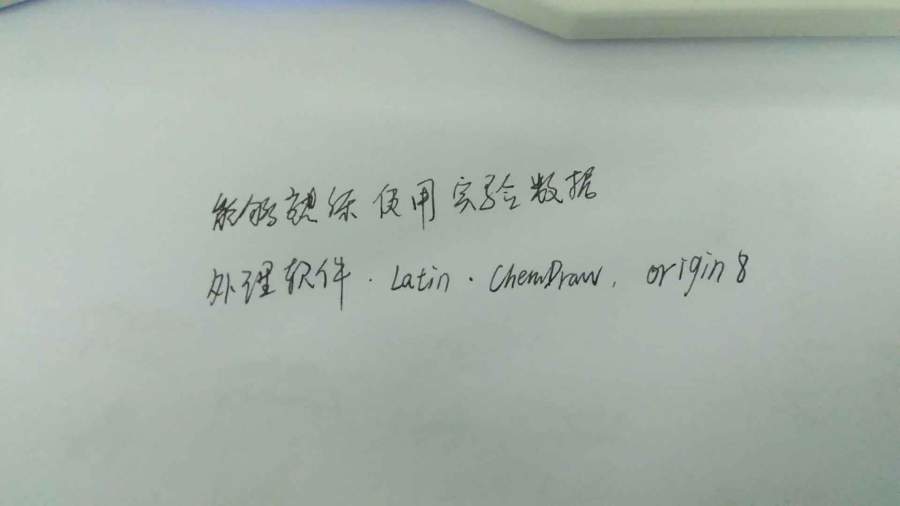 能够熟练使用实验数据
处理软件.Latin.ChemDraw, origin 8